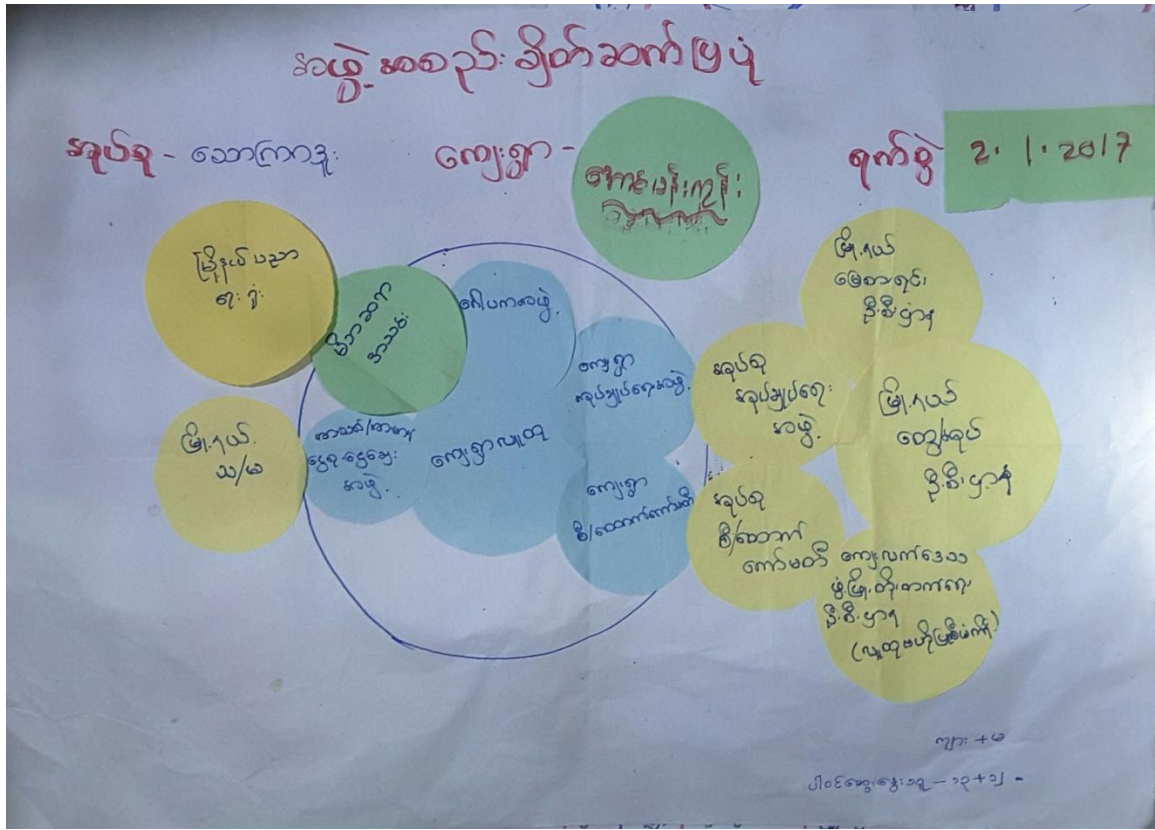 အဖွဲ့အစည်းချိတ်ဆက်ပြပုံ
အုပ်စု - သောကြာဒူး ကျေးရွာ - အောင်မန်းကျွန်း ရက်စွဲ 2.1.2017
မြို့နယ်ပညာ
ရေးရုံး
မိဘဆရာ
အသင်း
ဂေါပကအဖွဲ့
မြို့နယ်
သ/မ
အသင်း/အာမာန
ငွေစုငွေချေး
အဖွဲ့
ကျေးရွာလူထု
ကျေးရွာ
အုပ်ချုပ်ရေးအဖွဲ့
ကျေးရွာ
စီ/ထောက်ကော်မတီ
အုပ်စု
အုပ်ချုပ်ရေး
အဖွဲ့
အုပ်စု
စီ/ထောက်
ကော်မတီ
မြို့နယ်
မြေစာရင်း
ဦးစီးဌာန
မြို့နယ်
ထွေ/အုပ်
ဦးစီးဌာန
ကျေးလက်ဒေသ
ဖွံ့ဖြိုးတိုးတက်ရေး
ဦးစီးဌာန
(လူထုဗဟိုပြုစီမံကိန်း)
ကျား + မ
ပါဝင်ဆွေးနွေးသူ - ၁၃+၁၂ =